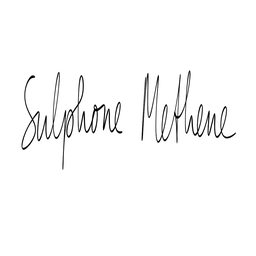 Sulphone Methene